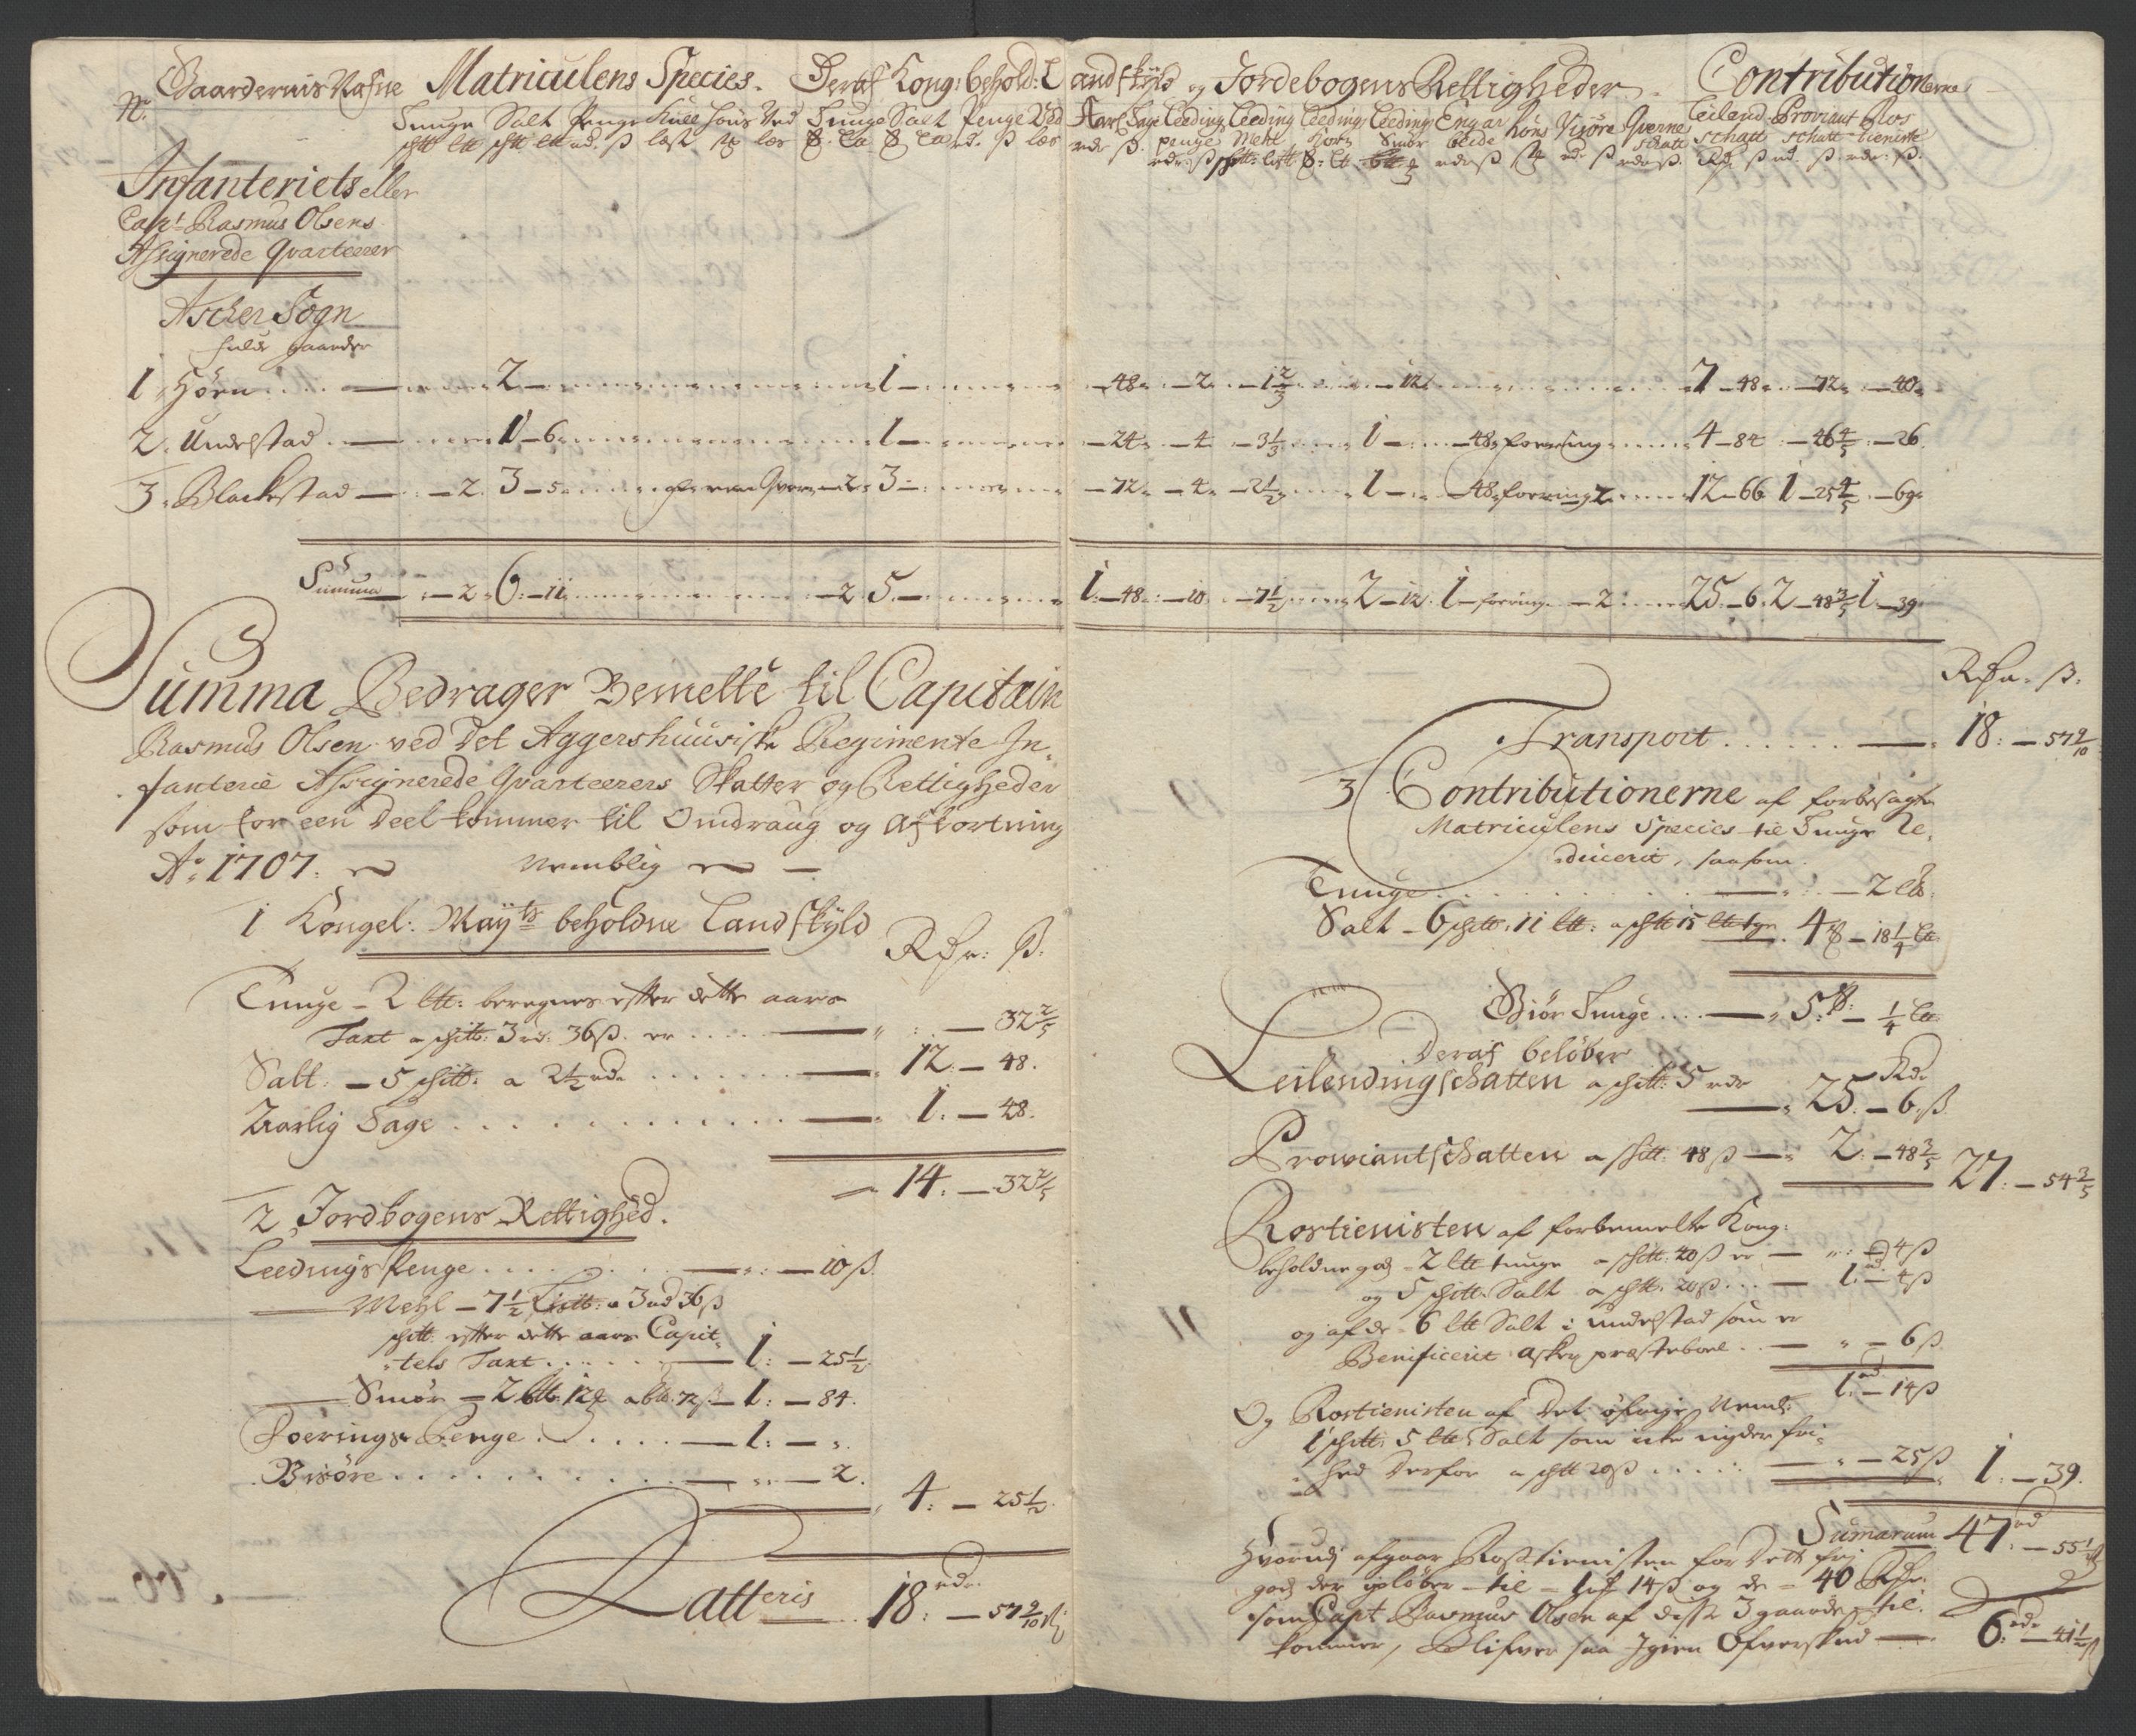 No. Gaardernis Nafne Matriculens Species. Deraf Kong: behold: Landskÿld og Jordebogens Rettigheder. Contributionerne
Tunge Salt Penge Huuder Ved Tunge Salt Penge Ved Aarl. Sage Leeding penge Leeding Mehl Leeding Korn Leeding Smör Engar leide höns Visöre Qverne skatt Leilend. schatt Proviant schatt Ros tieniste
Infanteriets eller
Capt: Rasmus Olsens
Assignerede Qvarteerer
Ascher Sogn
fulde gaarder
1 Hörn 2 1 48 2 1 2/3 12 7 48 72 40
2 Undelstad 1 6 1 24 4 3 1/3 1 48 foering 4 84 46 4/5 26
3 Blackstad 2 3 5 Qvern 2 3 72 4 2 1/2 1 48 foering 2 12 66 1 25 4/5 69
Summa 2 6 11 2 5 1 48 10 7 1/2 2 12 1 foering 2 25 6 2 48 3/5 1 39
Summa Bedrager Bemelte til Capitain
Rasmus Olsen ved Det Aggershuusiske Regimente In-
fanterie Assignerede Qvarteerers Skatter og Rettigheder
som for een Deel kommer til Omdraug og Afkortning
Ao 1707. Nemblig
1 Kongel: Maÿts beholdne Landskÿld
Rdr: ß:
Tunge - 2 ltt: beregnes efter dette aars
Taxt a schtt: 3 rd: 36 ß. er 32 2/5
Salt: - 5 schtt: a 2 1/2 rdr 12: - 48.
Aarlig Sage 1: - 48.
14: - 32 2/5
2 Jordbogens Rettighed.
Leedings Penge 10 ß.
Mehl - 7 1/2 Listt: a 3 rd 36 ß
schtt. efter dette aars Capit-
tels Taxt 1: - 25 1/2
Smör - 2 btt: 12 a btt: 72 ß 1: - 84.
Foerings Penge 1: -
Visöre 2.
4: - 25 1/2
Latteris 18 rdr: - 57 9/10 ß
Rdr. ß.
Transport 18: - 57 9/10
3 Contributionerne af forbesagte
Matriculens Species til Tunge Re-
ducerit, saasom.
Tunge 2 ltt.
Salt - 6 schtt. 11 ltt: a schtt 15 ltt tge 4 - 18 1/4 ltt.
Giör Tunge 5: - 1/4 ltt:
Deraf belöber
Rdr
Leilendingschatten a schtt: 5 rdr 25. - 6 ß
Prowiantschatten a schtt. 48 ß 2: - 48 3/5
27: - 54 3/5
Rostienisten af forbemelte Kong:
beholdne gods 2 ltt tunge a schtt: 40 ß er 4 ß
og 5 schtt: Salt a schtt: 20 ß 1: - 4 ß
og af de 6 ltt Salt i Undelstad som er
Benificerit Asker præsteboel 6 ß.
1 rd - 14 ß
Og Rostienisten af Det öfrige Neml:
1 schtt: 5 ltt Salt som icke nyder fri-
hed Derfor a schtt 20 ß 25 ß
1: - 39.
Sumarum 47 rd: - 55 1/2 ß
Hvorudj afgaar Rostienisten for Dett frj
gods der opløber til 1 rd 14 ß og de 40 Rdr.
som Capt Rasmus Olsen af disse 3 gaarde til-
kommer, Blifver saa Igien Ofverskud 6 rdr: - 41 1/2 ß